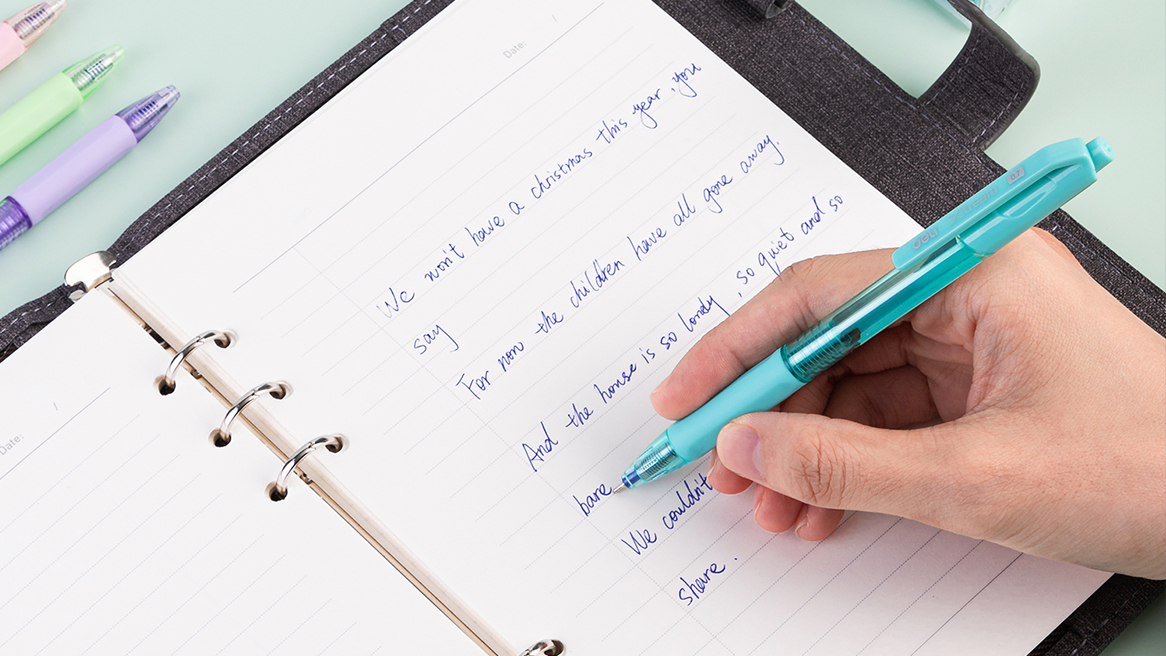 Date:
Date:
We won't have a christmas this year, you
say
For now the children have all gone away.
And the house is so lonely, so quiet and so
bare
We couldn't
share.
deli
0.7